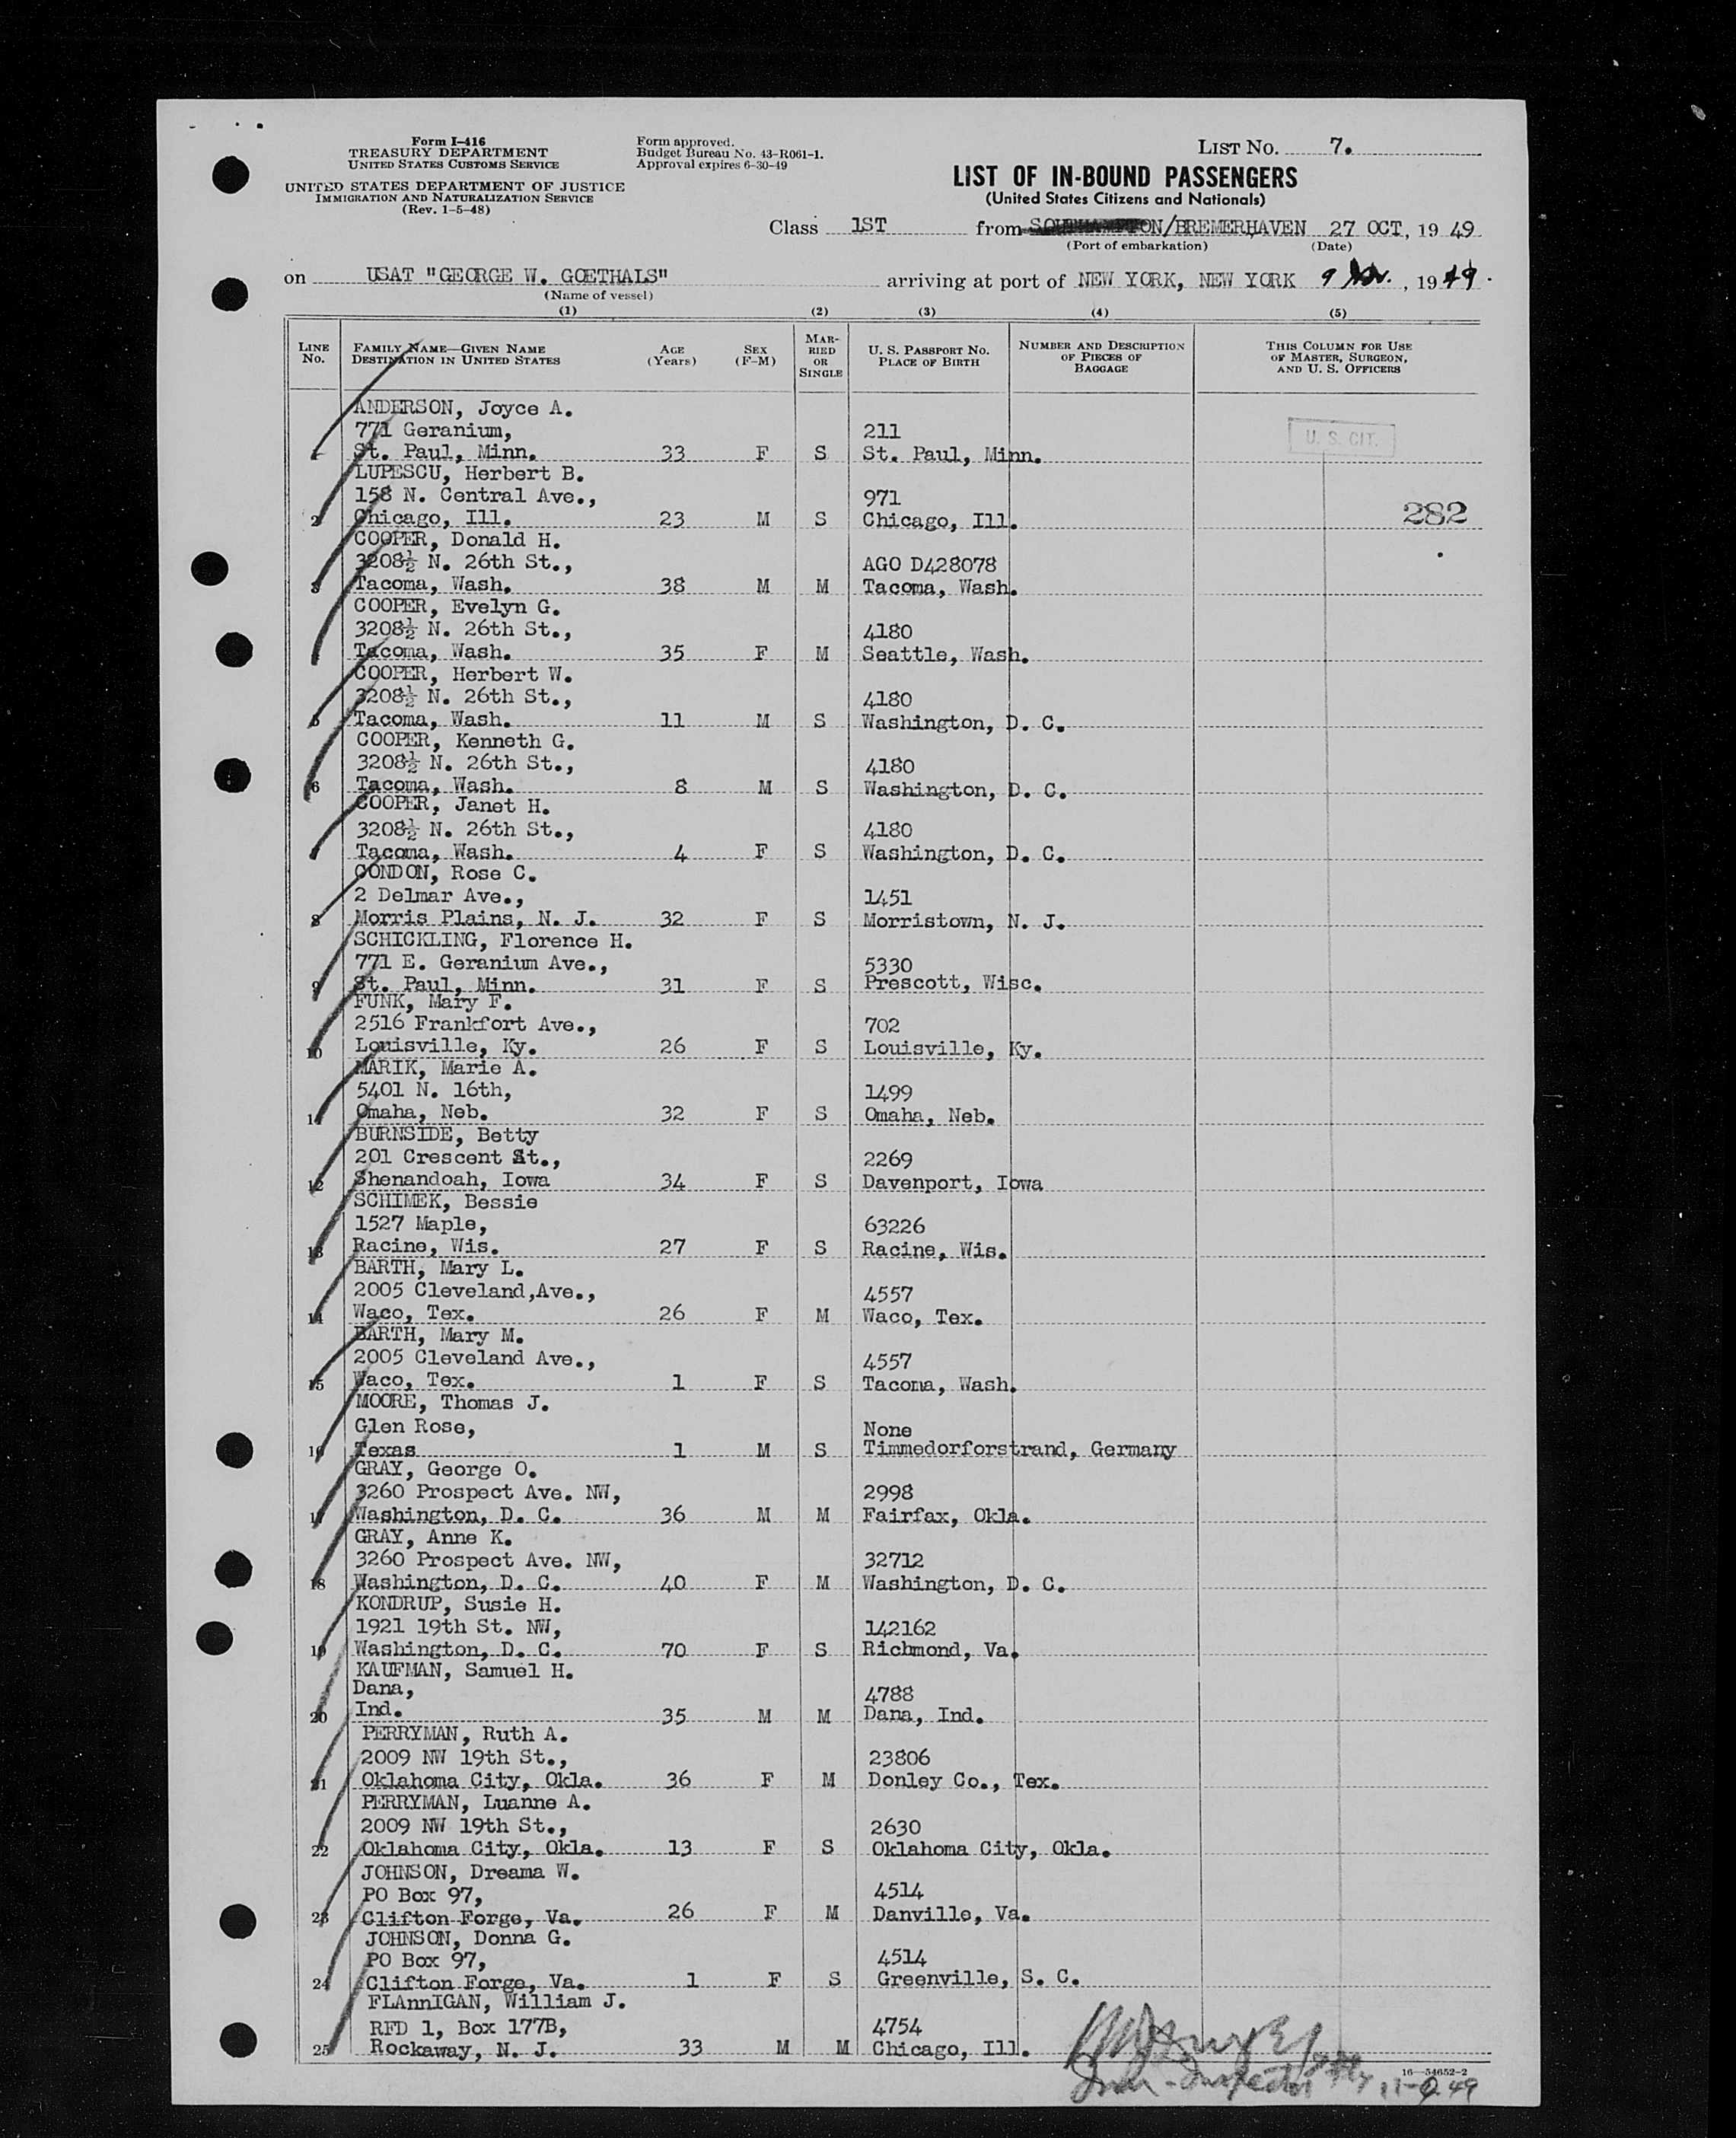 Form I-416
TREASURY DEPARTMENT
UNITED STATES CUSTOMS SERVICE
UNITED STATES DEPARTMENT OF JUSTICE
IMMIGRATION AND NATURALIZATION SERVICE
(Rev. 1-5-48)
Form approved.
Budget Bureau No. 43-R061-1.
Approval expires 6-30-49
LIST NO. 7.
LIST OF IN-BOUND PASSENGERS
(United States Citizens and Nationals)
Class 1ST from /BREMERHAVEN 27 OCT, 19 49
(Port of embarkation) (Date)
on USAT "GEORGE W. GOETHALS" arriving at port of NEW YORK, NEW YORK 9 Nov., 1949.
(Name of vessel)
(1) (2) (3) (4) (5)
LINE No. FAMILY NAME—GIVEN NAME DESTINATION IN UNITED STATES AGE (Years) SEX (F-M) MARRIED OR SINGLE U. S. PASSPORT NO. PLACE OF BIRTH NUMBER AND DESCRIPTION OF PIECES OF BAGGAGE THIS COLUMN FOR USE OF MASTER, SURGEON, AND U. S. OFFICERS
ANDERSON, Joyce A.
771 Geranium, 211 U. S. CIT.
1 St. Paul, Minn. 33 F S St. Paul, Minn.
LUPESCU, Herbert B.
158 N. Central Ave., 971
2 Chicago, Ill. 23 M S Chicago, Ill. 282
COOPER, Donald H.
3208½ N. 26th St., AGO D428078
3 Tacoma, Wash. 38 M M Tacoma, Wash.
COOPER, Evelyn G.
3208½ N. 26th St., 4180
4 Tacoma, Wash. 35 F M Seattle, Wash.
COOPER, Herbert W.
3208½ N. 26th St., 4180
5 Tacoma, Wash. 11 M S Washington, D. C.
COOPER, Kenneth G.
3208½ N. 26th St., 4180
6 Tacoma, Wash. 8 M S Washington, D. C.
COOPER, Janet H.
3208½ N. 26th St., 4180
7 Tacoma, Wash. 4 F S Washington, D. C.
CONDON, Rose C.
2 Delmar Ave., 1451
8 Morris Plains, N. J. 32 F S Morristown, N. J.
SCHICKLING, Florence H.
771 E. Geranium Ave., 5330
9 St. Paul, Minn. 31 F S Prescott, Wisc.
FUNK, Mary F.
2516 Frankfort Ave., 702
10 Louisville, Ky. 26 F S Louisville, Ky.
MARIK, Marie A.
5401 N. 16th, 1499
11 Omaha, Neb. 32 F S Omaha, Neb.
BURNSIDE, Betty
201 Crescent St., 2269
12 Shenandoah, Iowa 34 F S Davenport, Iowa
SCHIMEK, Bessie
1527 Maple, 63226
13 Racine, Wis. 27 F S Racine, Wis.
BARTH, Mary L.
2005 Cleveland,Ave., 4557
14 Waco, Tex. 26 F M Waco, Tex.
BARTH, Mary M.
2005 Cleveland Ave., 4557
15 Waco, Tex. 1 F S Tacoma, Wash.
MOORE, Thomas J.
Glen Rose, None
16 Texas 1 M S Timmedorforstrand, Germany
GRAY, George O.
3260 Prospect Ave. NW, 2998
17 Washington, D. C. 36 M M Fairfax, Okla.
GRAY, Anne K.
3260 Prospect Ave. NW, 32712
18 Washington, D. C. 40 F M Washington, D. C.
KONDRUP, Susie H.
1921 19th St. NW, 142162
19 Washington, D. C. 70 F S Richmond, Va.
KAUFMAN, Samuel H.
Dana, 4788
20 Ind. 35 M M Dana, Ind.
PERRYMAN, Ruth A.
2009 NW 19th St., 23806
21 Oklahoma City, Okla. 36 F M Donley Co., Tex.
PERRYMAN, Luanne A.
2009 NW 19th St., 2630
22 Oklahoma City, Okla. 13 F S Oklahoma City, Okla.
JOHNSON, Dreama W.
PO Box 97, 4514
23 Clifton Forge, Va. 26 F M Danville, Va.
JOHNSON, Donna G.
PO Box 97, 4514
24 Clifton Forge, Va. 1 F S Greenville, S. C.
FLAnnIGAN, William J.
RFD 1, Box 177B, 4754
25 Rockaway, N. J. 33 M M Chicago, Ill.
16—54652-2
11-9-49